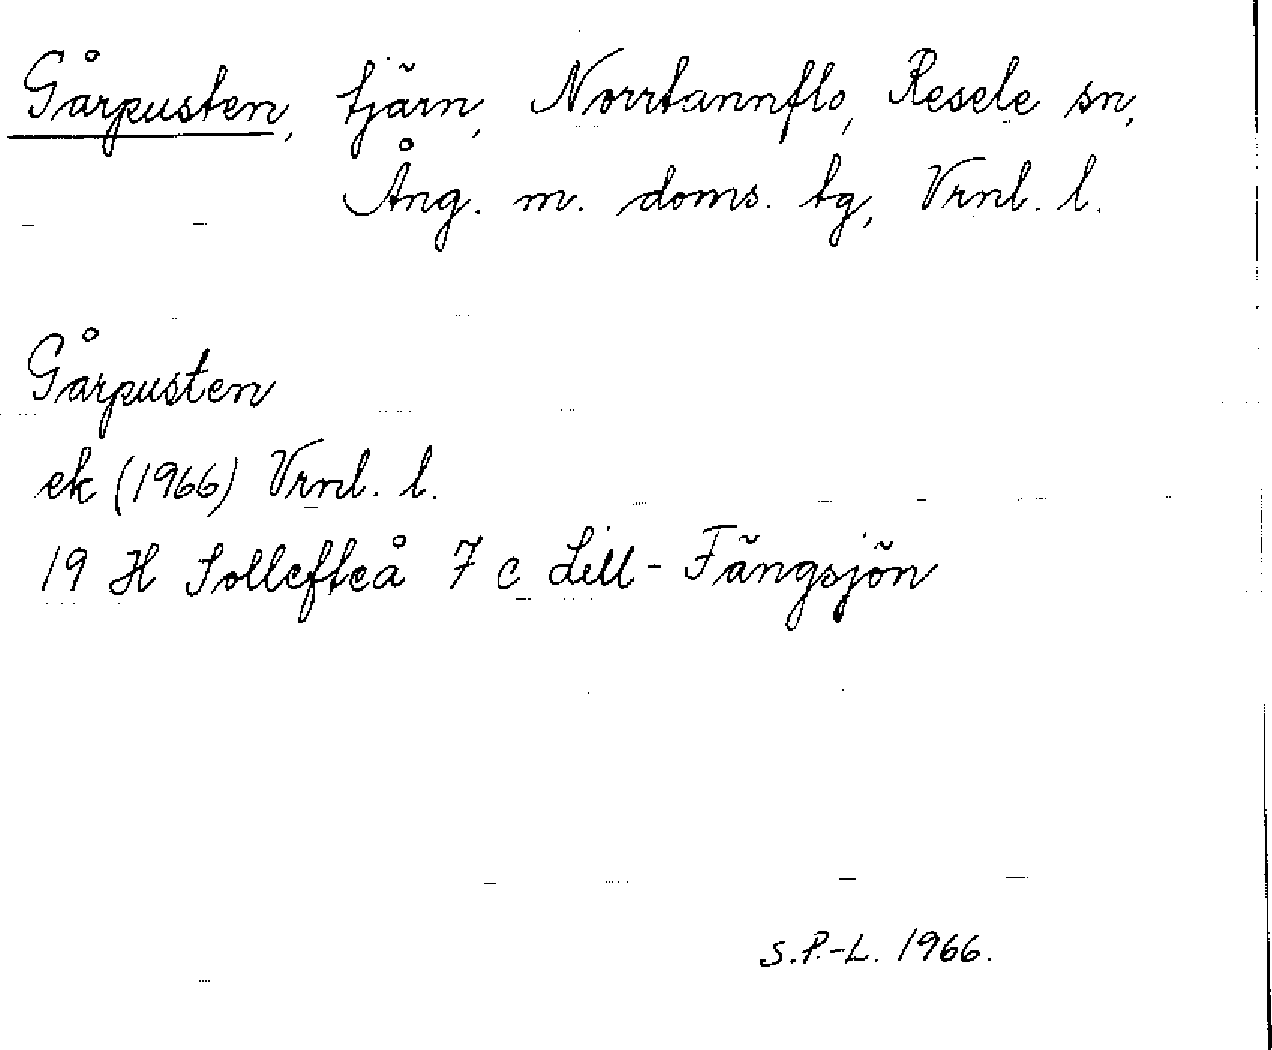 Gårpusten, tjärn, Norrtannflo, Resele sn,
Ång. m. doms. tg, Vrnl. l.
Gårpusten
ek (1966) Vrnl. l.
19 H Sollefteå 7 c Lill-Fängsjön
S.P.-L. 1966.